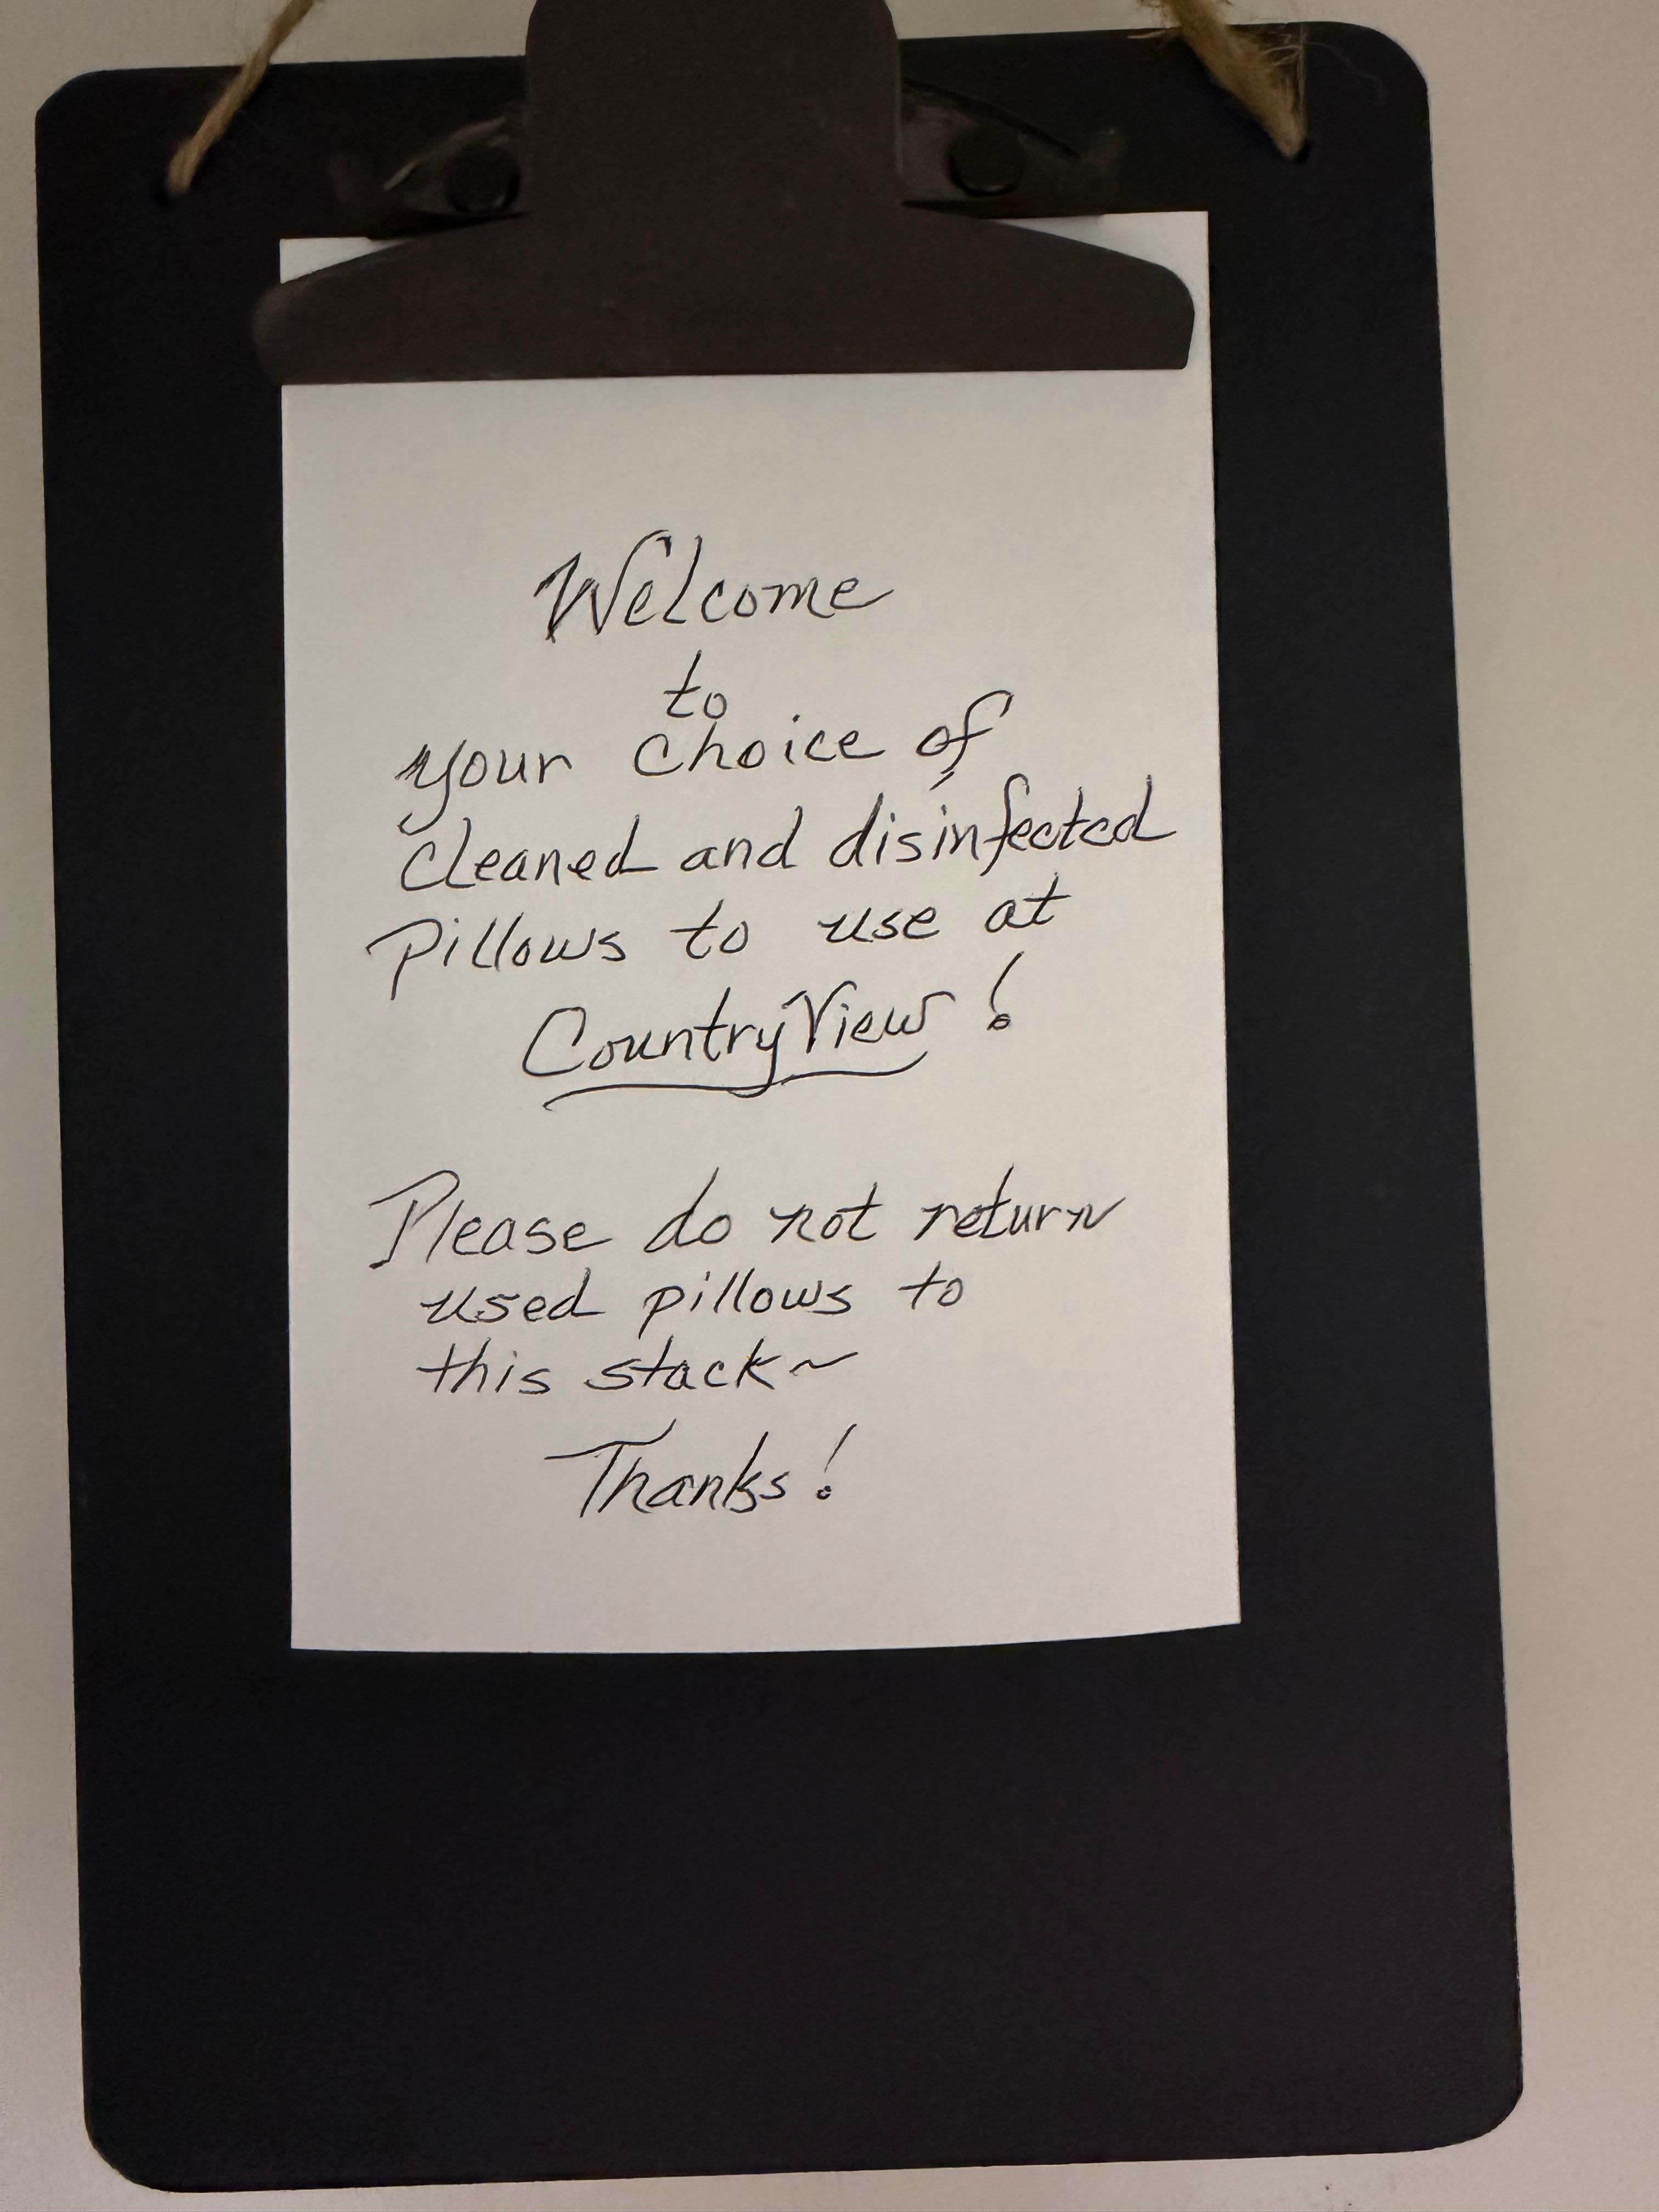 Welcome
to
your choice of
cleaned and disinfected
pillows to use at
CountryView!
Please do not return
used pillows to
this stack~
Thanks!